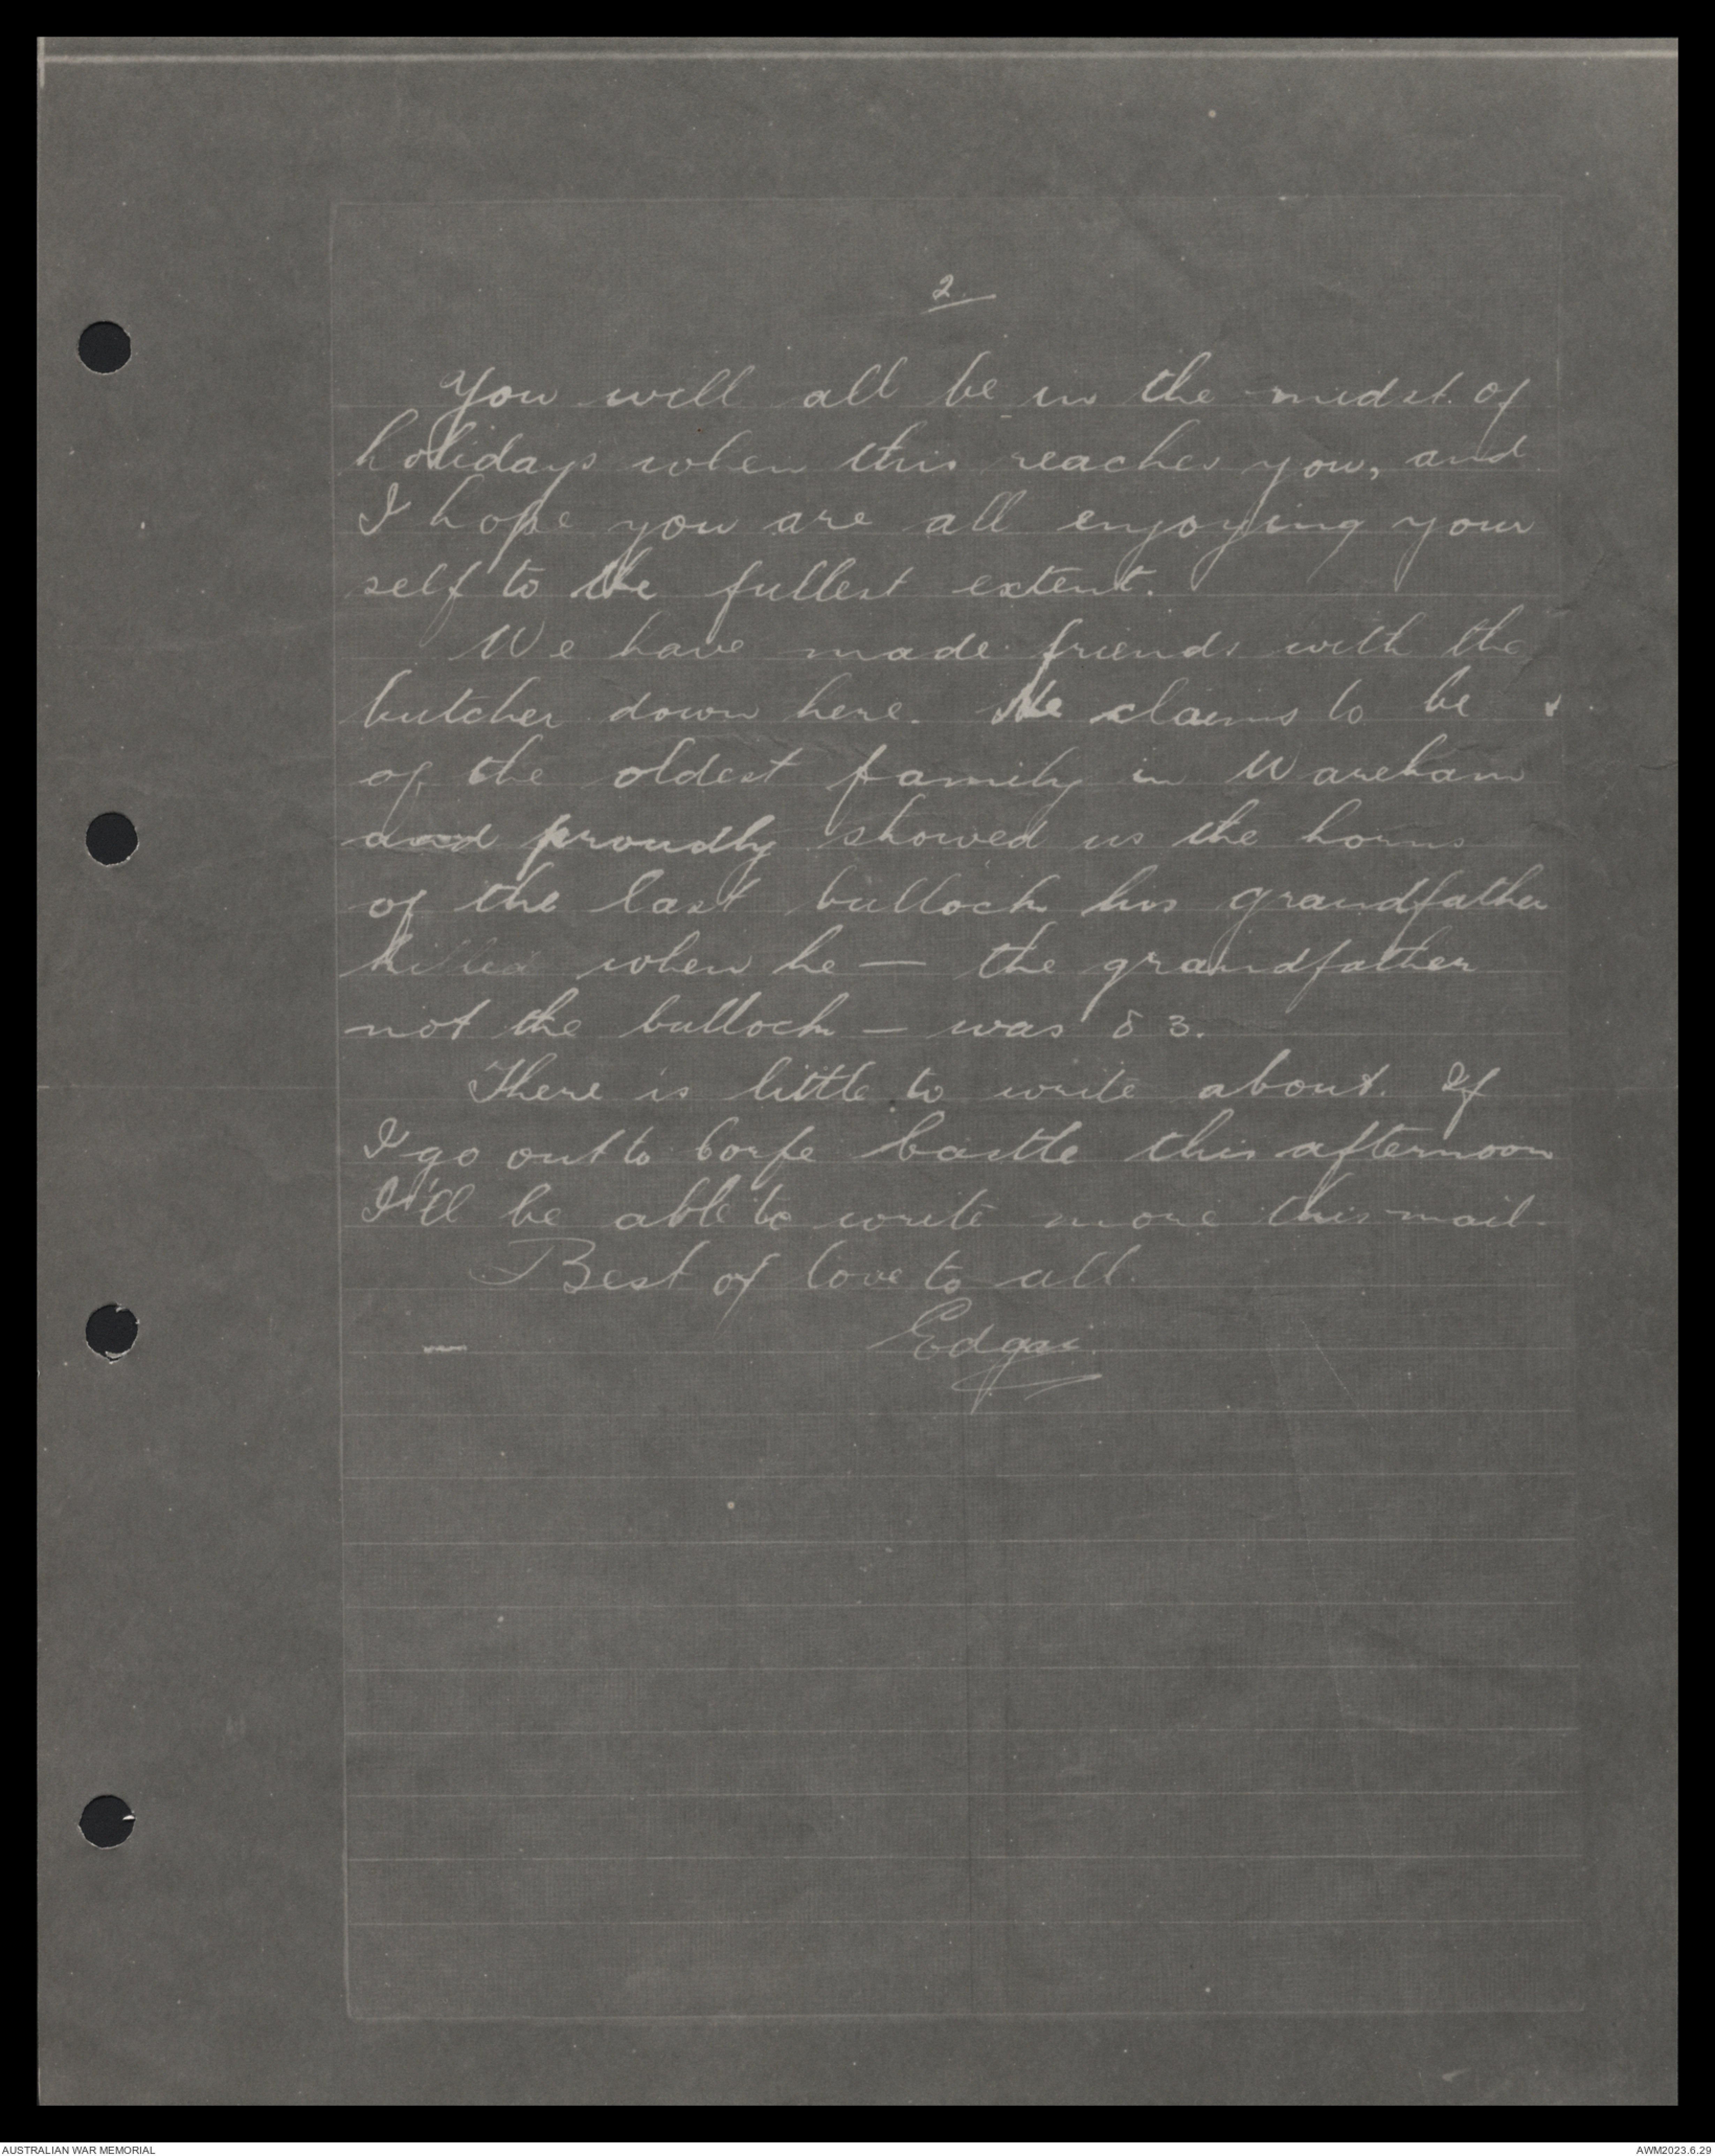 2.
You will all be in the midst of
holidays when this reaches you, and
I hope you are all enjoying your
self to the fullest extent.
We have made friends with the
butcher down here. He claims to be
of the oldest family in Wareham
and proudly showed us the horns
of the last bullock his grandfather
killed when he — the grandfather
not the bullock — was 83.
There is little to write about. If
I go out to Corfe Castle this afternoon
I'll be able to write more this mail.
Best of love to all.
Edgar.
AUSTRALIAN WAR MEMORIAL
AWM2023.6.29